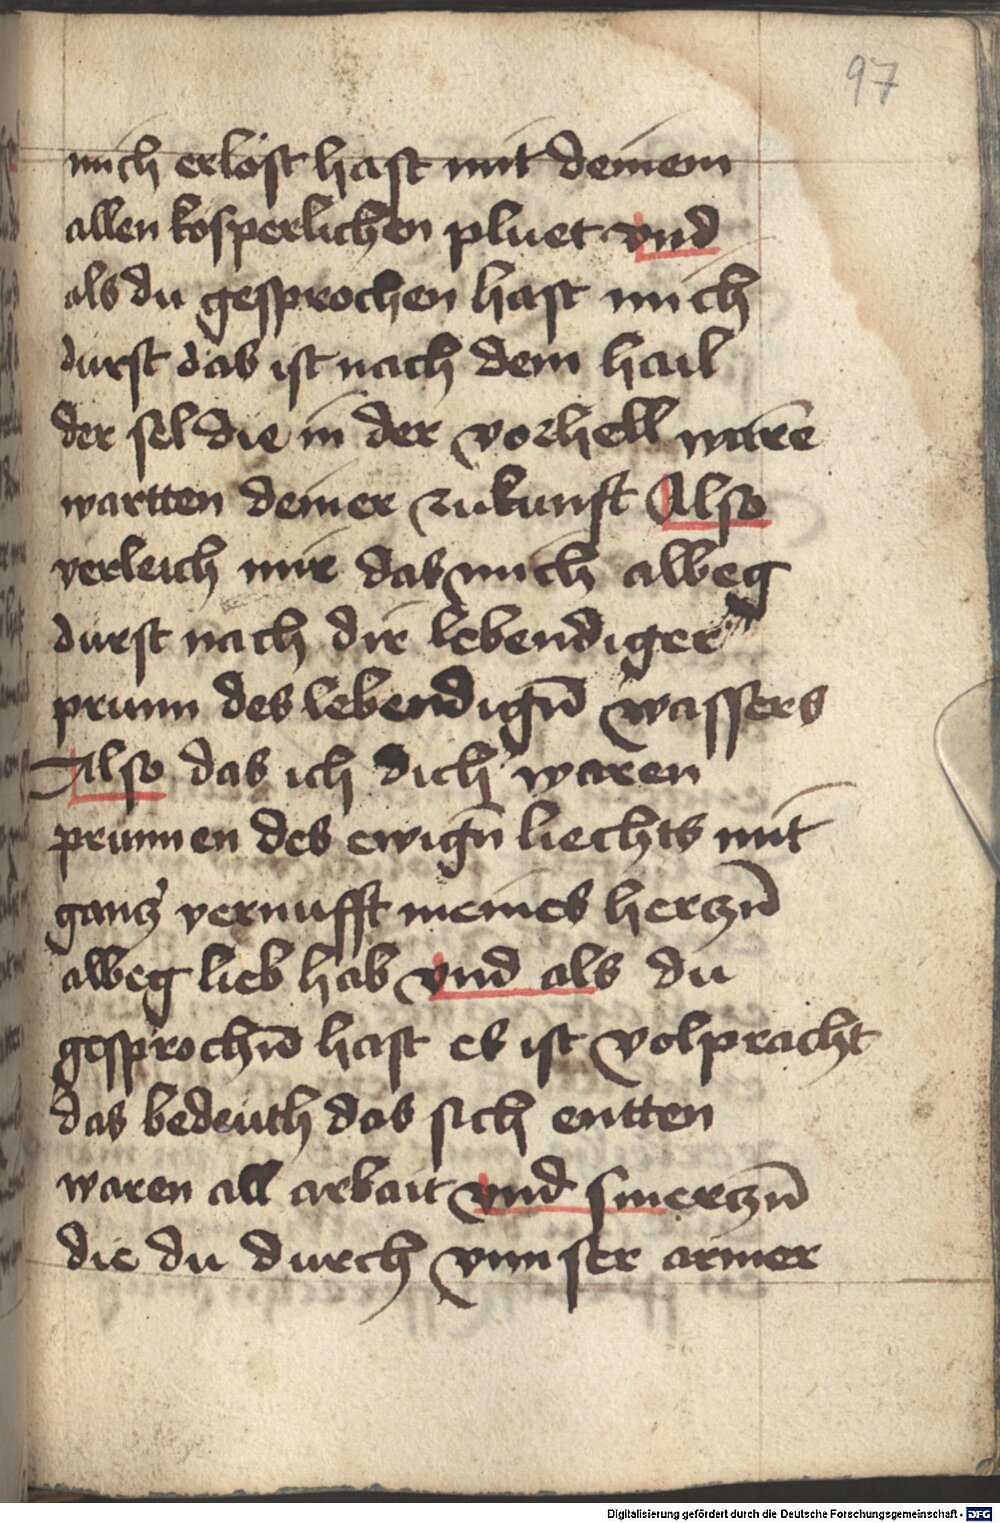 97
mich erlöst hast mit deinem
allen kosperlichen pluet vnd
als du gesprochen hast mich
durst das ist nach dem hail
der sel die in der vorhell warē
wartten deiner zukunft Also
verleich mir das mich albeg
durst nach dir lebendiger
prunn des lebendign̄ wassers
Also das ich dich waren
prunnen des ewign̄ liechts mit
gancz vernufft meines herczn̄
albeg lieb hab vnd als du
gesprochn̄ hast es ist volpracht
das bedeuth das sich entten
waren all arbait vnd smerczn̄
die du durch vnnser armer
Digitalisierung gefördert durch die Deutsche Forschungsgemeinschaft - DFG